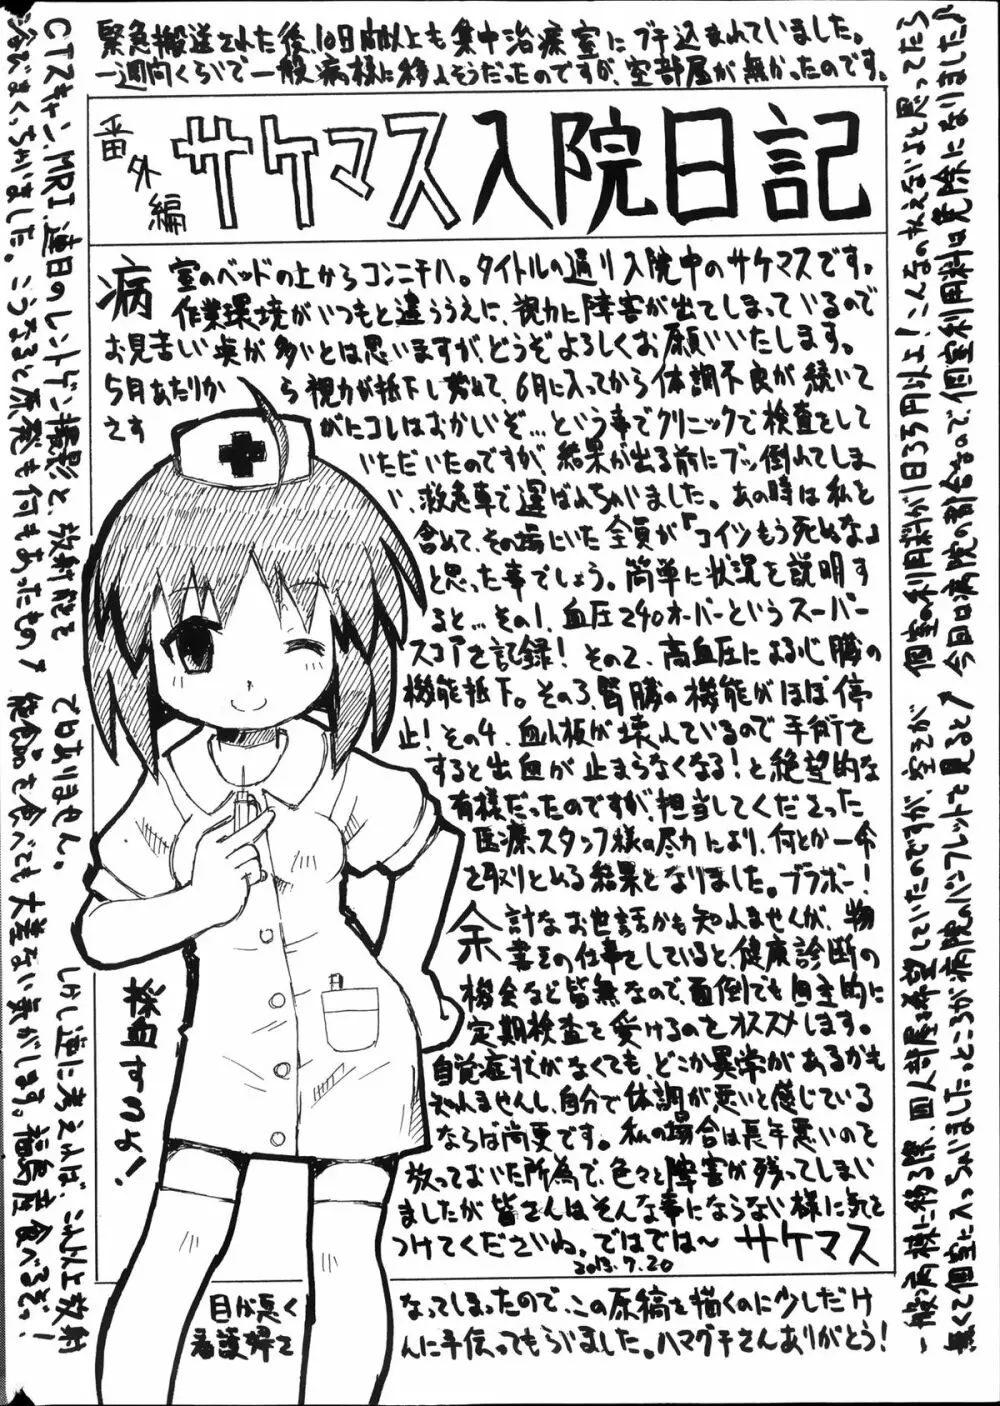 緊急搬送された後、10日間以上も集中治療室にブチ込まれていました。
一週間くらいで一般病棟に移れそうだったのですが、空部屋が無かったのです。
番外編
サケマス入院日記
病室のベッドの上からコンニチハ。タイトルの通り入院中のサケマスです。
作業環境がいつもと違ううえに、視力に障害が出てしまっているので
お見苦しい点が多いとは思いますが、どうぞよろしくお願いいたします。
5月あたりから視力が抵下し始めて、6月に入ってから体調不良が続いて
さすがにコレはおかしいぞ…という事でクリニックで検査をして
いただいたのですが、結果が出る前にブッ倒れてしま
い、救急車で運ばれちゃいました。あの時は私を
含めて、その場にいた全員が「コイツもう死ぬな」
と思った事でしょう。簡単に状況を説明す
ると…その1、血圧240オーバーというスーパー
スコアを記録!その2、高血圧による心臓の
機能抵下。その3、腎臓の機能がほぼ停
止!その4、血小板が壊れているので手術を
すると出血が止まらなくなる!と絶望的な
有様だったのですが、担当してくださった
医療スタッフ様の尽力により、何とか一命
を取りとめる結果となりました。ブラボー!
余計なお世話かも知れませんが、物
書きの仕事をしていると、健康診断の
機会など皆無なので、面倒でも自主的に
定期検査を受けるのをオススメします。
自覚症状がなくても、どこか異常があるかも
知れませんし、自分で体調が悪いと感じている
ならば尚更です。私の場合は長年悪いのを
放っておいた所為で、色々と障害が残ってしまい
ましたが皆さんはそんな事にならない様に気を
つけてくださいね。ではでは〜 サケマス
2013.7.20
目が悪くなってしまったので、この原稿を描くのに少しだけ
看護婦さんに手伝ってもらいました。ハマグチさんありがとう!
一般病棟に移る際、四人部屋を希望していたのですが、空きが
無くて個室に入っちゃいました。ところが病院のパンフレットを見ると↗
個室の利用料が1日3万円以上!こんなの払えないよと思ってたら
今回は病院の都合なので、個室利用料は免除になりました♪
CTスキャン、MRI、連日のレントゲン撮影と、放射能を
浴びまくっちゃいました。こうなると原発も何もあったもの↗
でありません。しかし逆に考えれば、これ以上放射
能食品を食べても大差ない気がします。福島産食べるぞっ!